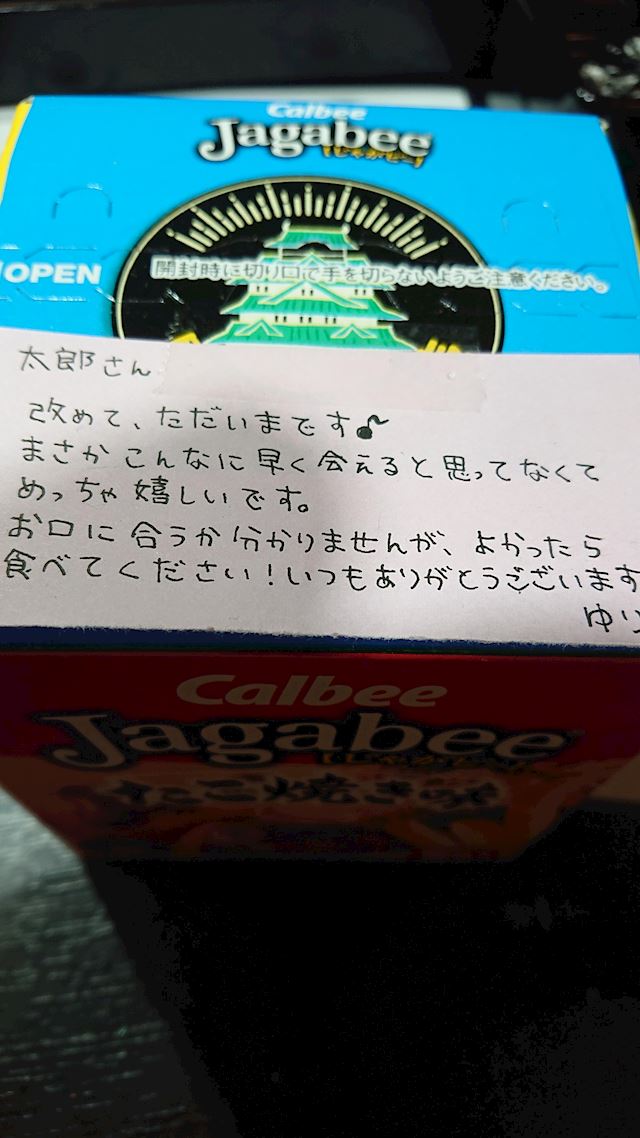 Calbee
Jagabee
じゃがビー
OPEN
開封時に切り口で手を切らないようご注意ください。
太郎さん
改めて、ただいまです♪
まさかこんなに早く会えると思ってなくて
めっちゃ嬉しいです。
お口に合うか分かりませんが、よかったら
食べてください！いつもありがとうございます
ゆり
Calbee
Jagabee
じゃがビー
たこ焼き味